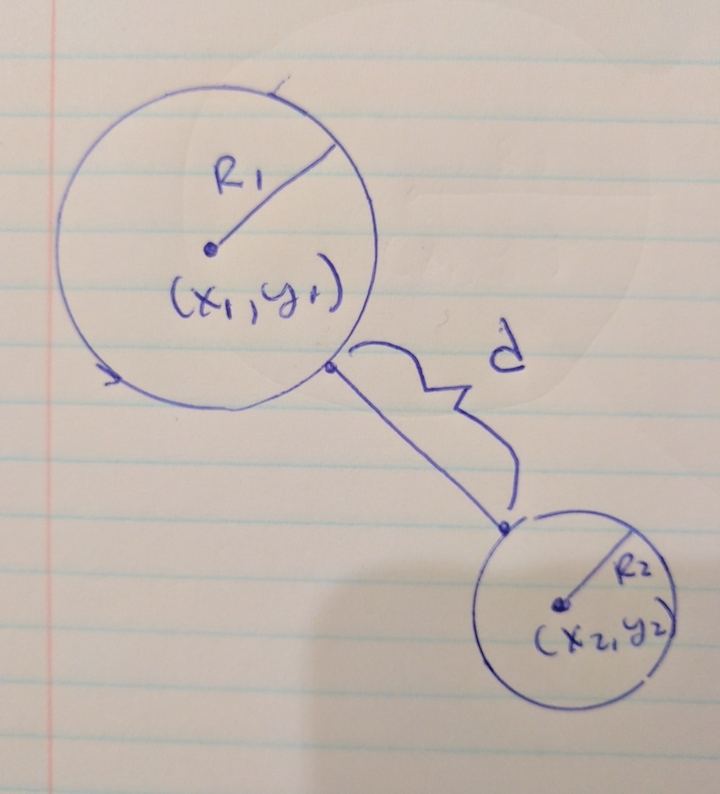 R₁
(x₁, y₁)
d
R₂
(x₂, y₂)